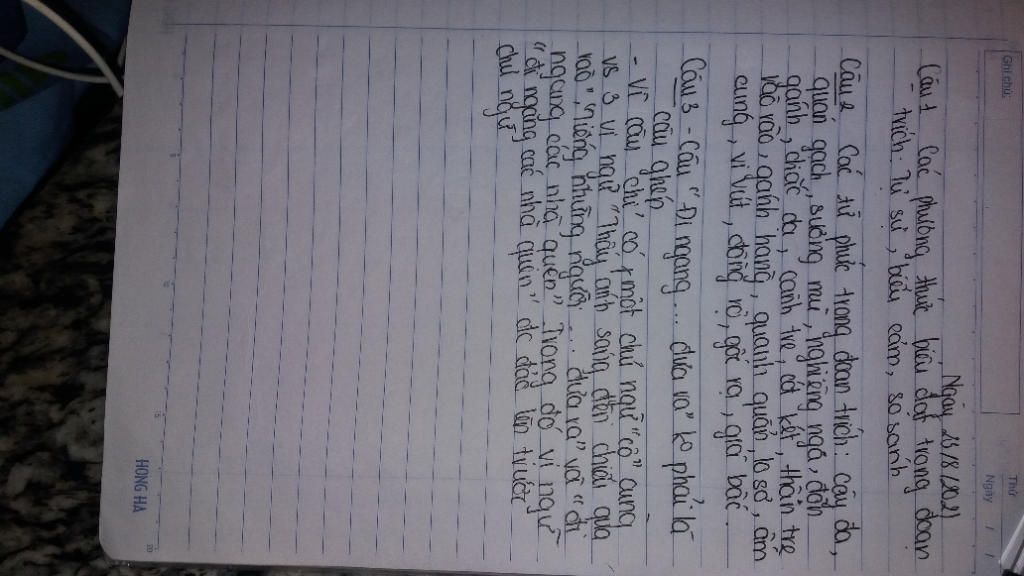 Ghi chú:
Thứ
Ngày / /
Ngày 26/8/2021
Câu 1 Các phương thức biểu đạt trong đoạn
trích: Tự sự, biểu cảm, so sánh
Câu 2 Các từ phức trong đoạn trích: cây đa,
quán gạch, sương mù, nghiêng ngả, đòn
gánh, chốc đã, cành tre, cót két, thân tre
rào rào, gánh hàng, quanh quẩn lo sợ, ầm
cung, vi vút, động rộ, gãy rạ, gió bấc.
Câu 3 - Câu "Đi ngang... đưa ra" ko phải là
câu ghép
- Vì câu chỉ có 1 một chủ ngữ "cô" cùng
vs 3 vị ngữ "Thấy ánh sáng đèn chiếu qua
rào", "tiếng những người... đưa ra" và "đi
ngang các nhà quen" Trong đó vị ngữ
"đi ngang các nhà quen" đc đảo lên trước
chủ ngữ
HONG HA